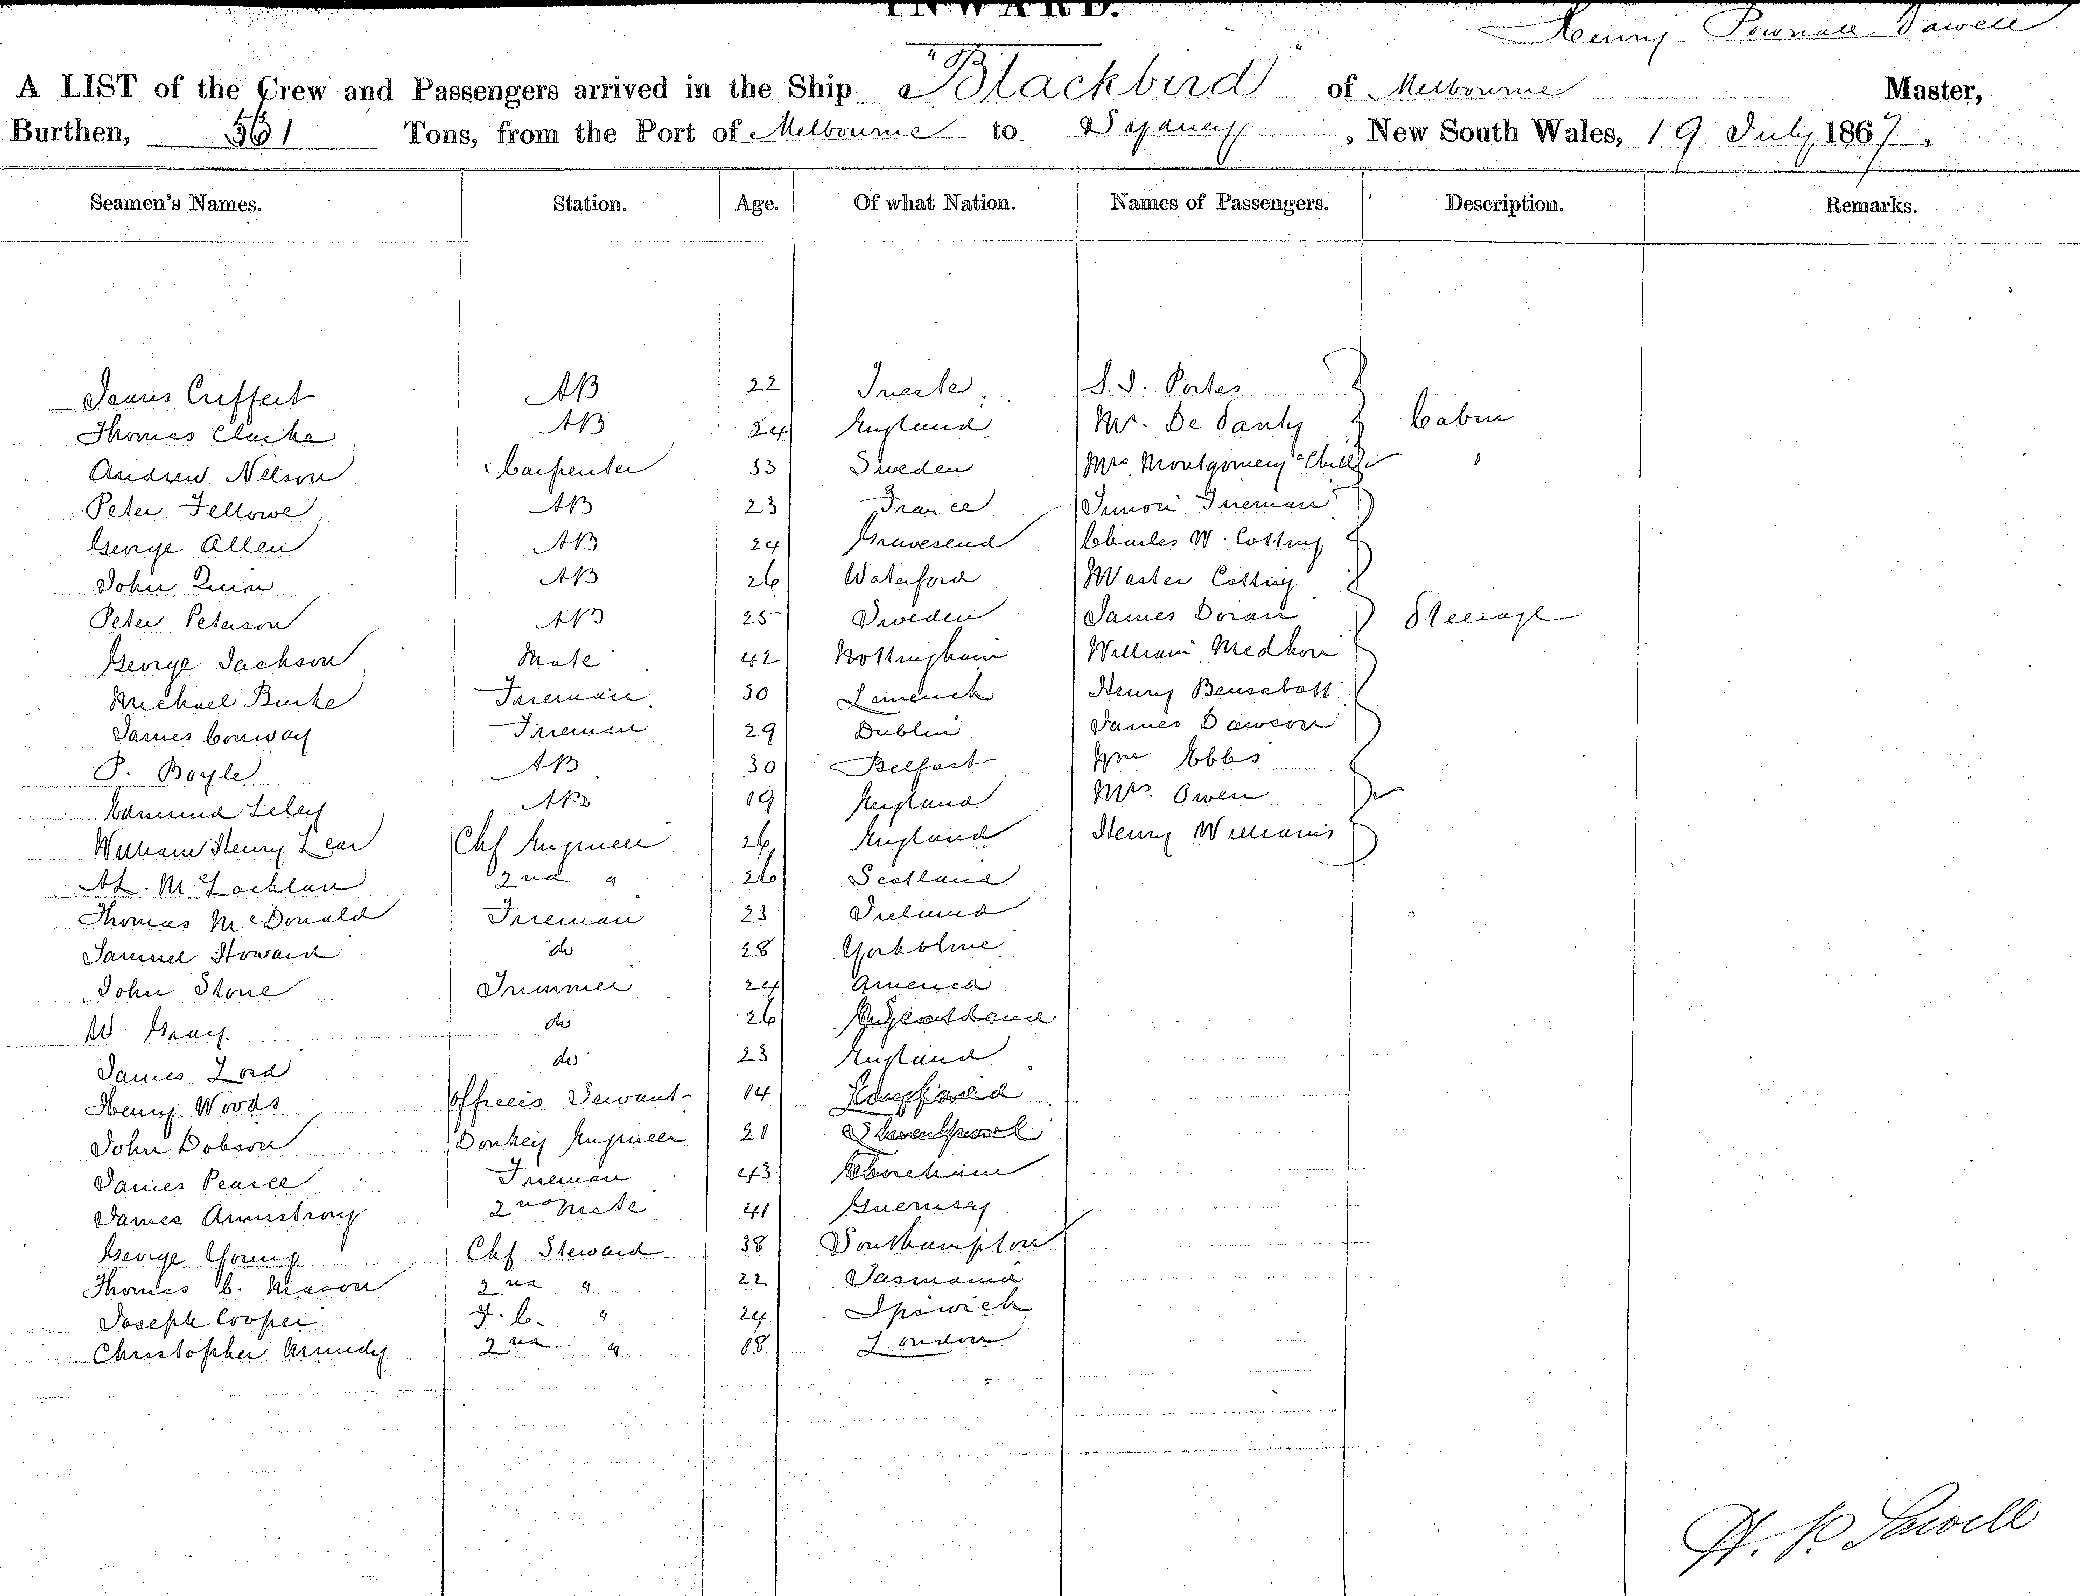 INWARD.
Henry Pownall Sawell
A LIST of the Crew and Passengers arrived in the Ship "Blackbird" of Melbourne Master,
Burthen, 531 Tons, from the Port of Melbourne to Sydney, New South Wales, 19 July 1867.
Seamen's Names. Station. Age. Of what Nation. Names of Passengers. Description. Remarks.
James AB 22 Trieste S. I. Porter
Thomas Clarke AB 24 England Mr. De Cabin
Andrew Nelson Carpenter 33 Sweden Mrs Montgomery & Child "
Peter Fellowe AB 23 France Simon Freeman
George Allen AB 24 Gravesend Charles W. Cotting
John Quin AB 26 Waterford Master Cotting
Peter Peterson AB 25 Sweden James Doran Steerage
George Jackson Mate 42 Nottingham William
Michael Burke Fireman 30 Limerick Henry
James Conway Fireman 29 Dublin James Dawson
P. Boyle AB 30 Belfast Jno Ebbs
Edmund AB 19 England Mrs. Owen
William Henry Lear Chf Engineer 26 England Henry Williams
McLachlan 2nd " 26 Scotland
Thomas McDonald Fireman 23 Ireland
Samuel Howard do 28 Yorkshire
John Stone Trimmer 24 America
W Gray do 26
James Lord do 23 England
Henry Woods Officers Servant 14
John Dobson Donkey Engineer 21
James Pearce Fireman 43 Shoreham
James Armstrong 2nd Mate 41 Guernsey
George Young Chf Steward 38 Southampton
Thomas C. Mason 2nd " 22 Tasmania
Joseph Cooper F. C. " 24 Ipswich
Christopher Mundy 2nd " 18 London
H. P. Sawell